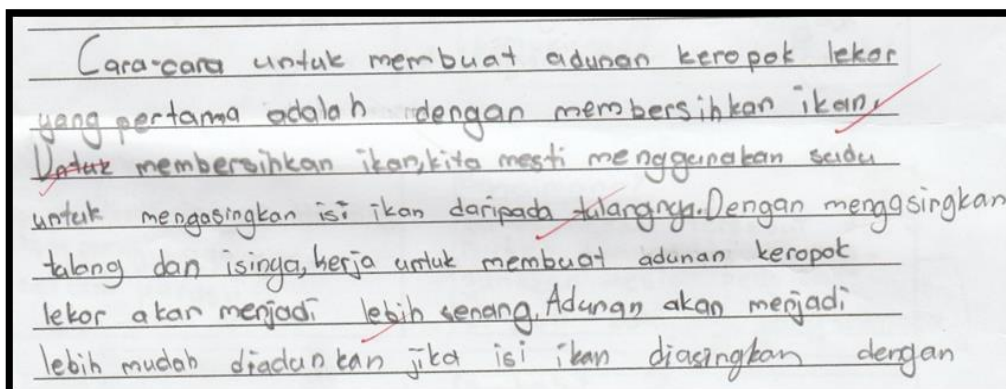 Cara-cara untuk membuat adunan keropok lekor
yang pertama adalah dengan membersihkan ikan.
Untuk membersihkan ikan, kita mesti menggunakan sudu
untuk mengasingkan isi ikan daripada tulangnya. Dengan mengasingkan
tulang dan isinya, kerja untuk membuat adunan keropok
lekor akan menjadi lebih senang. Adunan akan menjadi
lebih mudah diadunkan jika isi ikan diasingkan dengan